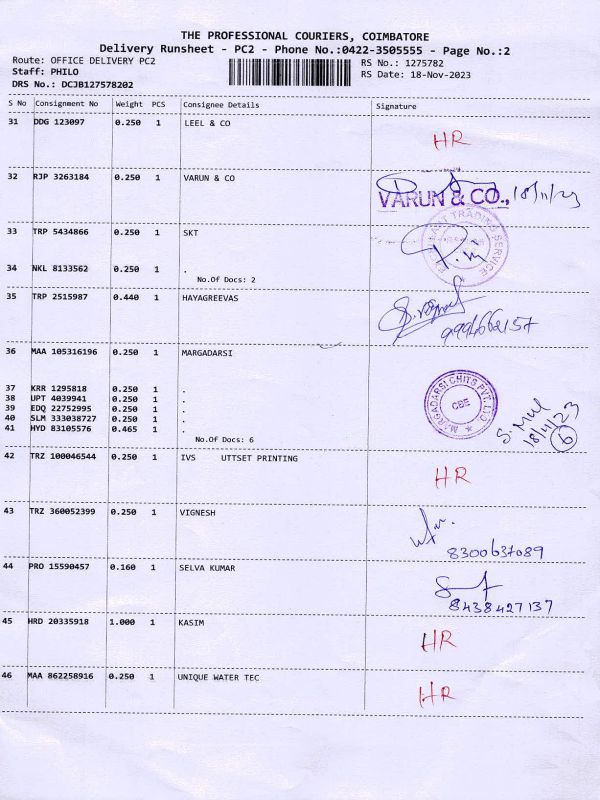 THE PROFESSIONAL COURIERS, COIMBATORE
Delivery Runsheet - PC2 - Phone No.:0422-3505555 - Page No.:2
Route: OFFICE DELIVERY PC2
Staff: PHILO
DRS No.: DCJB127578202
RS No.: 1275782
RS Date: 18-Nov-2023
S No Consignment No Weight PCS Consignee Details Signature
31 DDG 123097 0.250 1 LEEL & CO HR
32 RJP 3263184 0.250 1 VARUN & CO
VARUN & CO., 18/11/23
33 TRP 5434866 0.250 1 SKT
TRADING SERVICE
34 NKL 8133562 0.250 1 .
No.Of Docs: 2
35 TRP 2515987 0.440 1 HAYAGREEVAS
9994662157
36 MAA 105316196 0.250 1 MARGADARSI
37 KRR 1295818 0.250 1 .
38 UPT 4039941 0.250 1 .
39 EDQ 22752995 0.250 1 .
40 SLM 333038727 0.250 1 .
41 HYD 83105576 0.465 1 .
No.Of Docs: 6
MARGADARSI CHITS PVT. LTD
CBE
18/11/23
6
42 TRZ 100046544 0.250 1 IVS UTTSET PRINTING HR
43 TRZ 360052399 0.250 1 VIGNESH
8300637089
44 PRO 15590457 0.160 1 SELVA KUMAR
8438427137
45 HRD 20335918 1.000 1 KASIM HR
46 MAA 862258916 0.250 1 UNIQUE WATER TEC HR